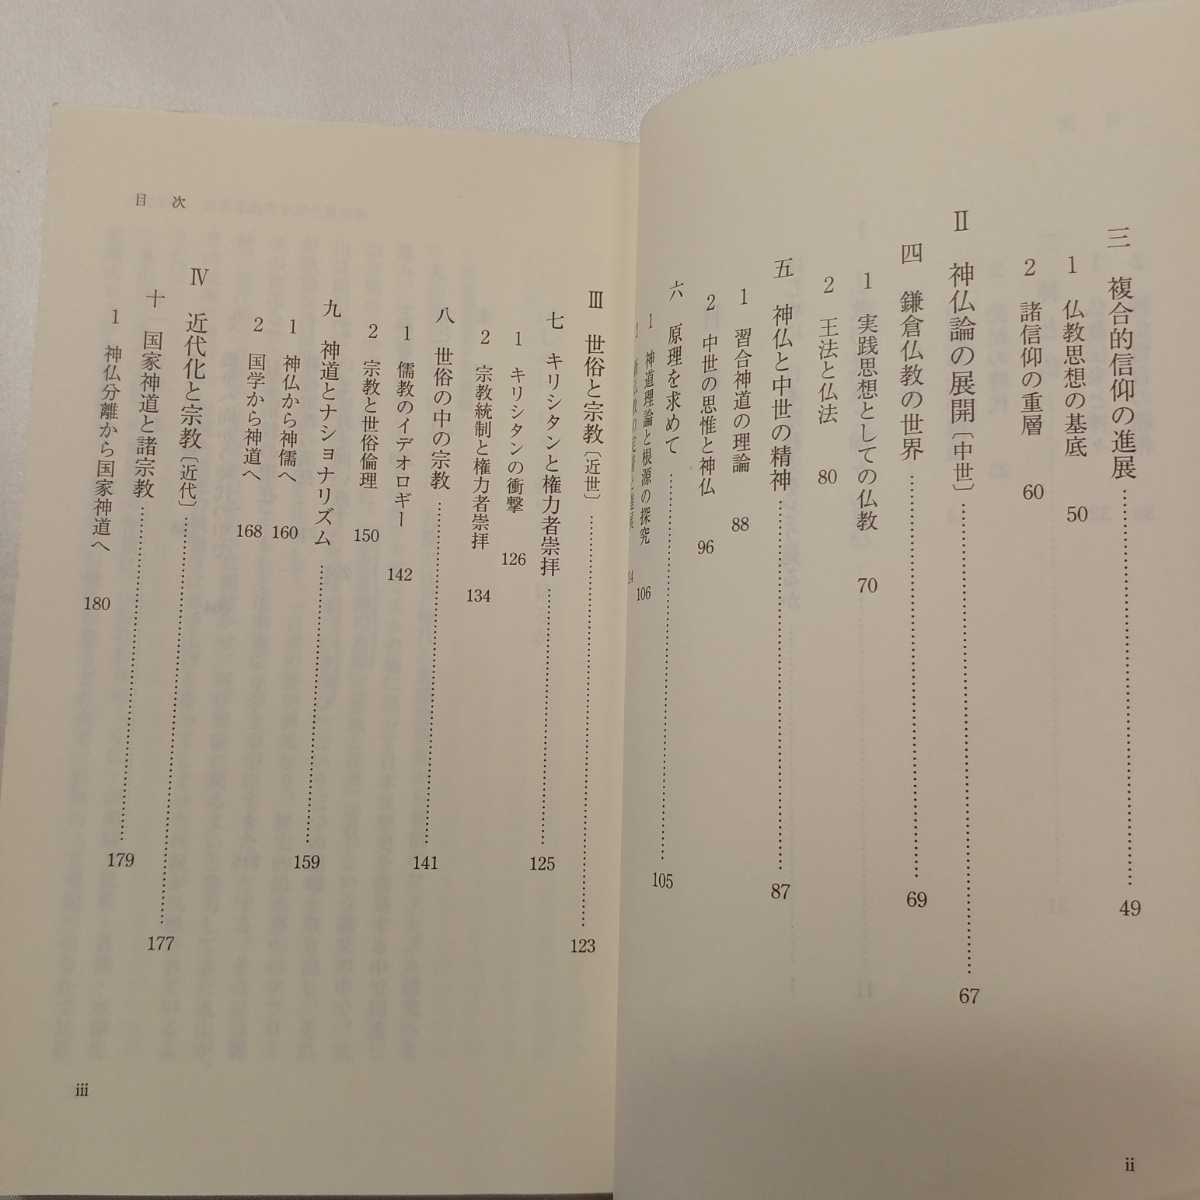 三 複合的信仰の進展……49
1 仏教思想の基底 50
2 諸信仰の重層 60
Ⅱ 神仏論の展開〔中世〕……67
四 鎌倉仏教の世界……69
1 実践思想としての仏教 70
2 王法と仏法 80
五 神仏と中世の精神……87
1 習合神道の理論 88
2 中世の思惟と神仏 96
六 原理を求めて……105
1 神道理論と根源の探究 106
ii
目次
Ⅲ 世俗と宗教〔近世〕……123
七 キリシタンと権力者崇拝……125
1 キリシタンの衝撃 126
2 宗教統制と権力者崇拝 134
八 世俗の中の宗教……141
1 儒教のイデオロギー 142
2 宗教と世俗倫理 150
九 神道とナショナリズム……159
1 神仏から神儒へ 160
2 国学から神道へ 168
Ⅳ 近代化と宗教〔近代〕……177
十 国家神道と諸宗教……179
1 神仏分離から国家神道へ 180
iii